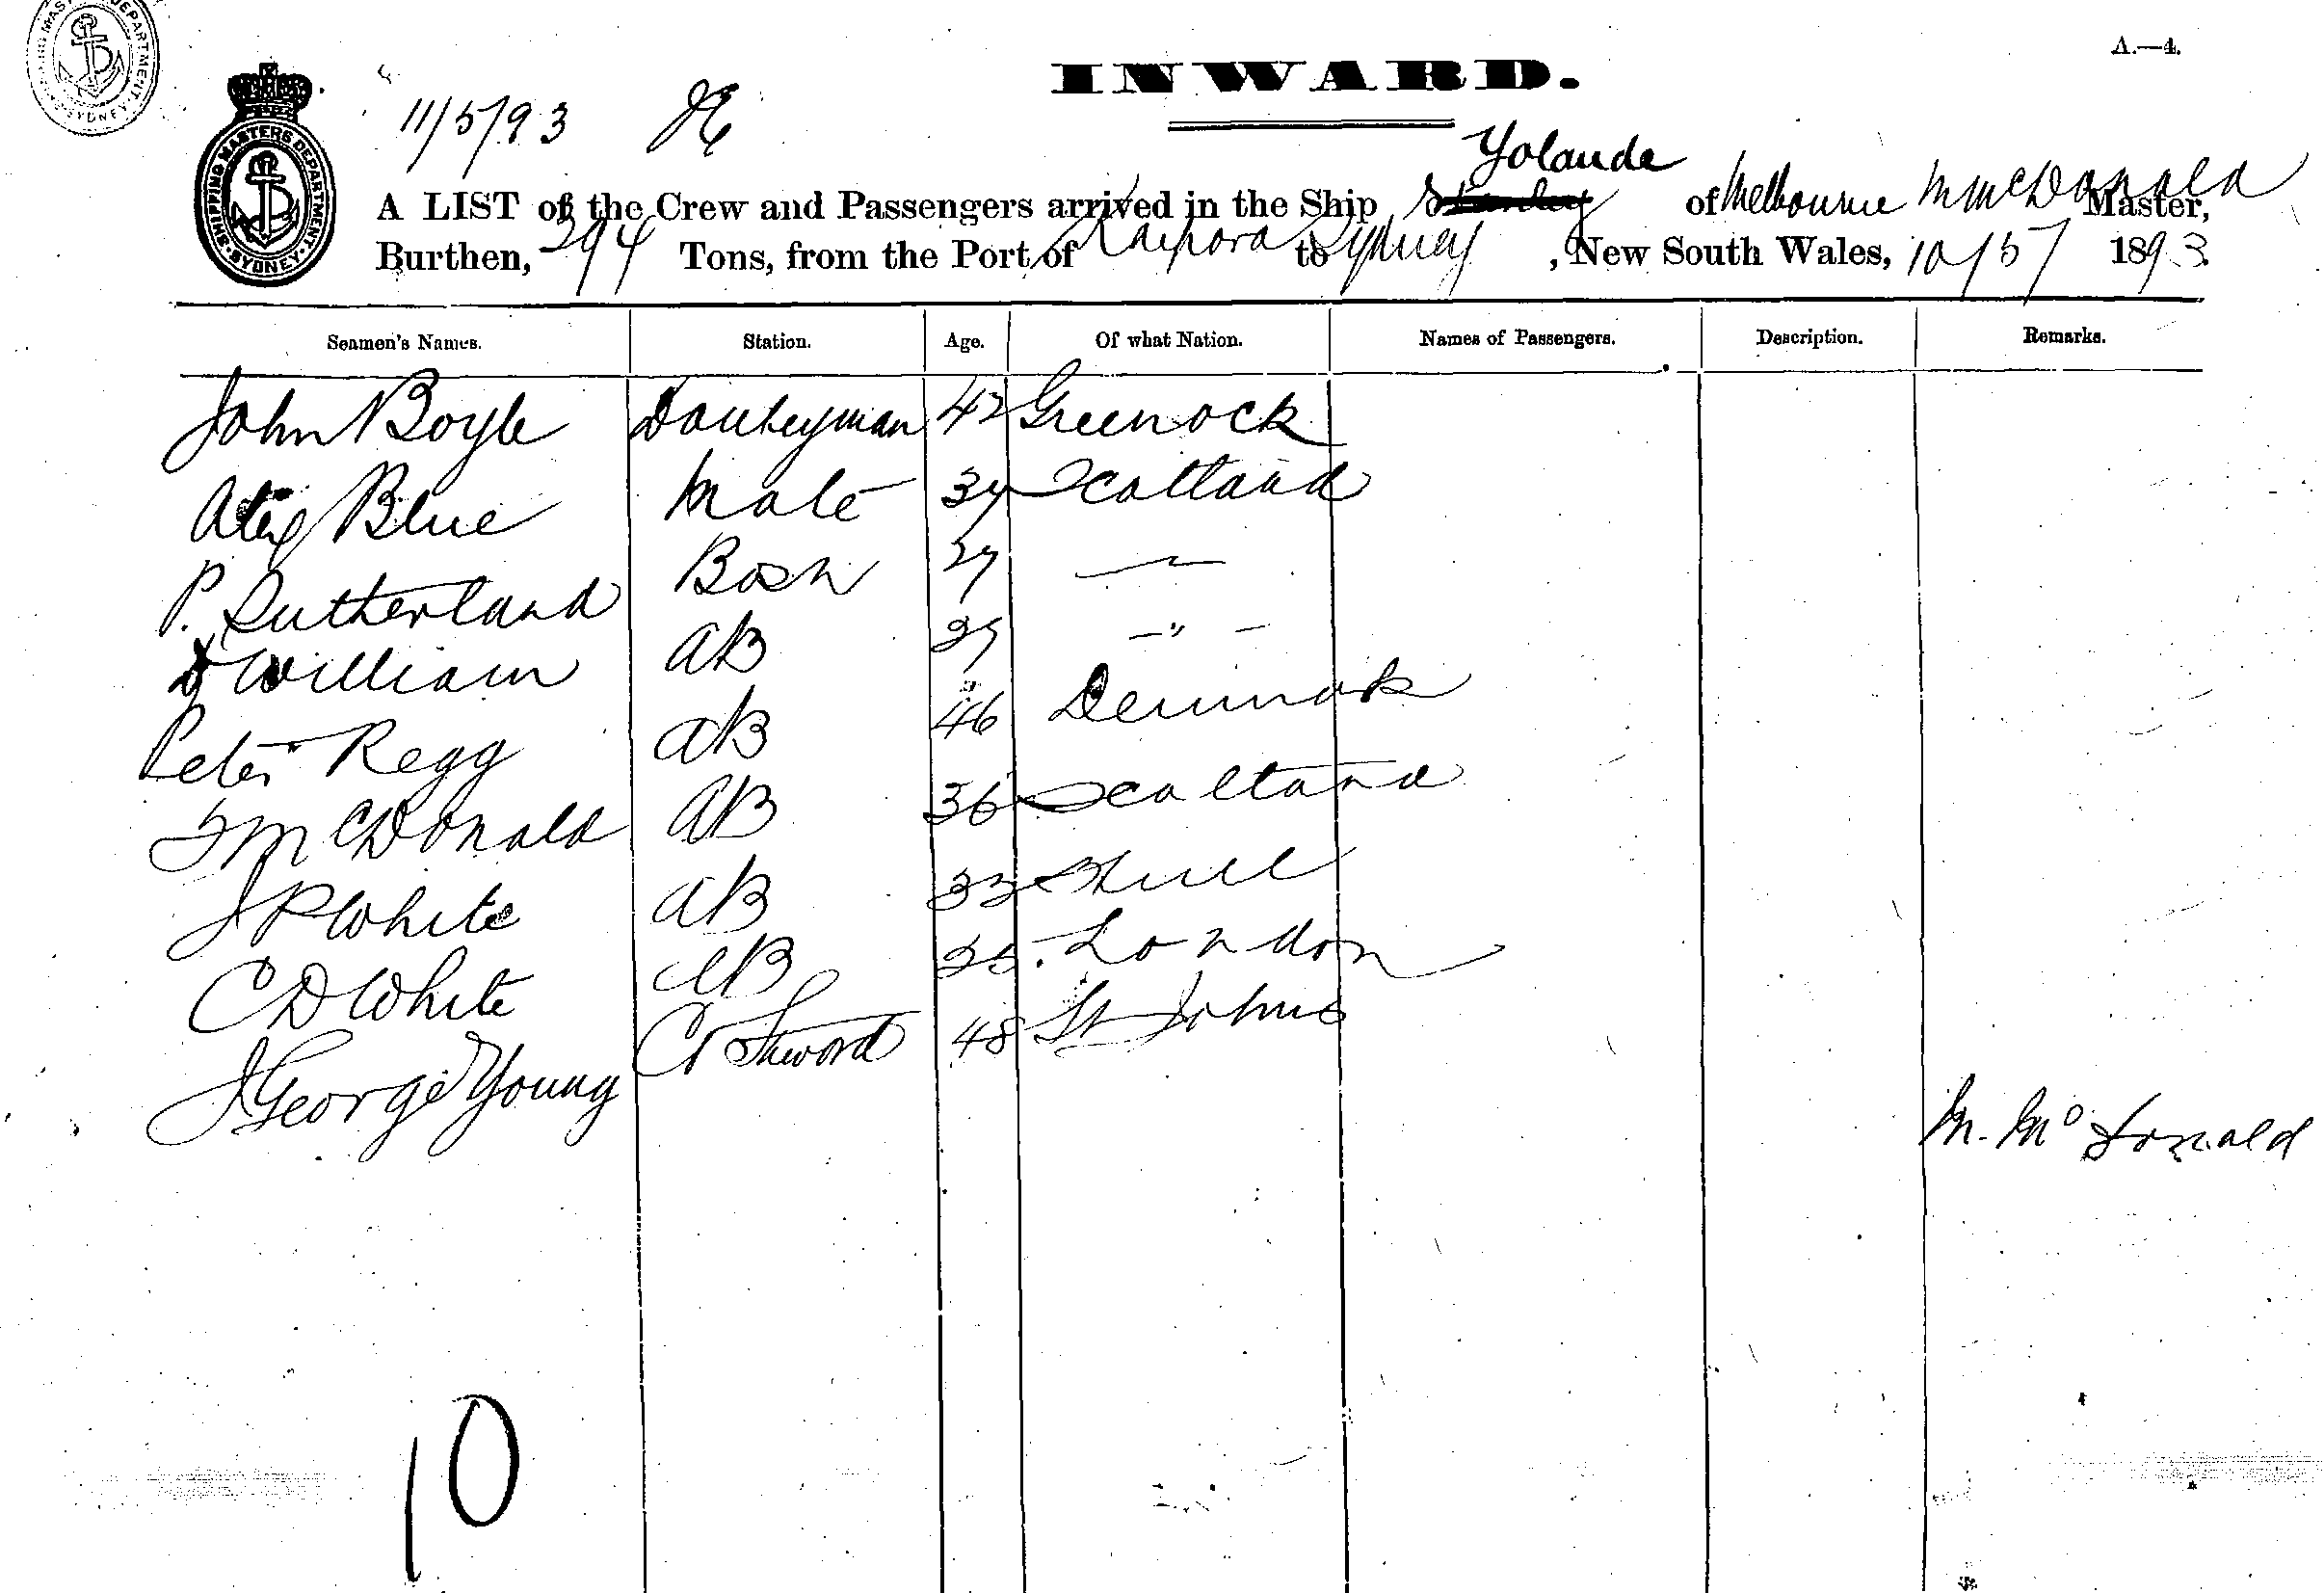 A.—4.
INWARD.
11/5/93
SHIPPING MASTERS DEPARTMENT SYDNEY
Yolande
A LIST of the Crew and Passengers arrived in the Ship Stanley of Melbourne M McDonald Master,
Burthen, 394 Tons, from the Port of Kaipara to Sydney, New South Wales, 10/5/ 1893.
Seamen's Names. Station. Age. Of what Nation. Names of Passengers. Description. Remarks.
John Boyle Donkeyman 42 Greenock
Alex Blue Mate 34 Scotland
P. Sutherland Bosn 27 —
William AB 29 —"—
Peter Regg AB 46 Denmark
McDonald AB 36 Scotland
J P White AB 33 Hull
C D White AB 25. London
J George Young St Johns 48
M. Mc Donald
10